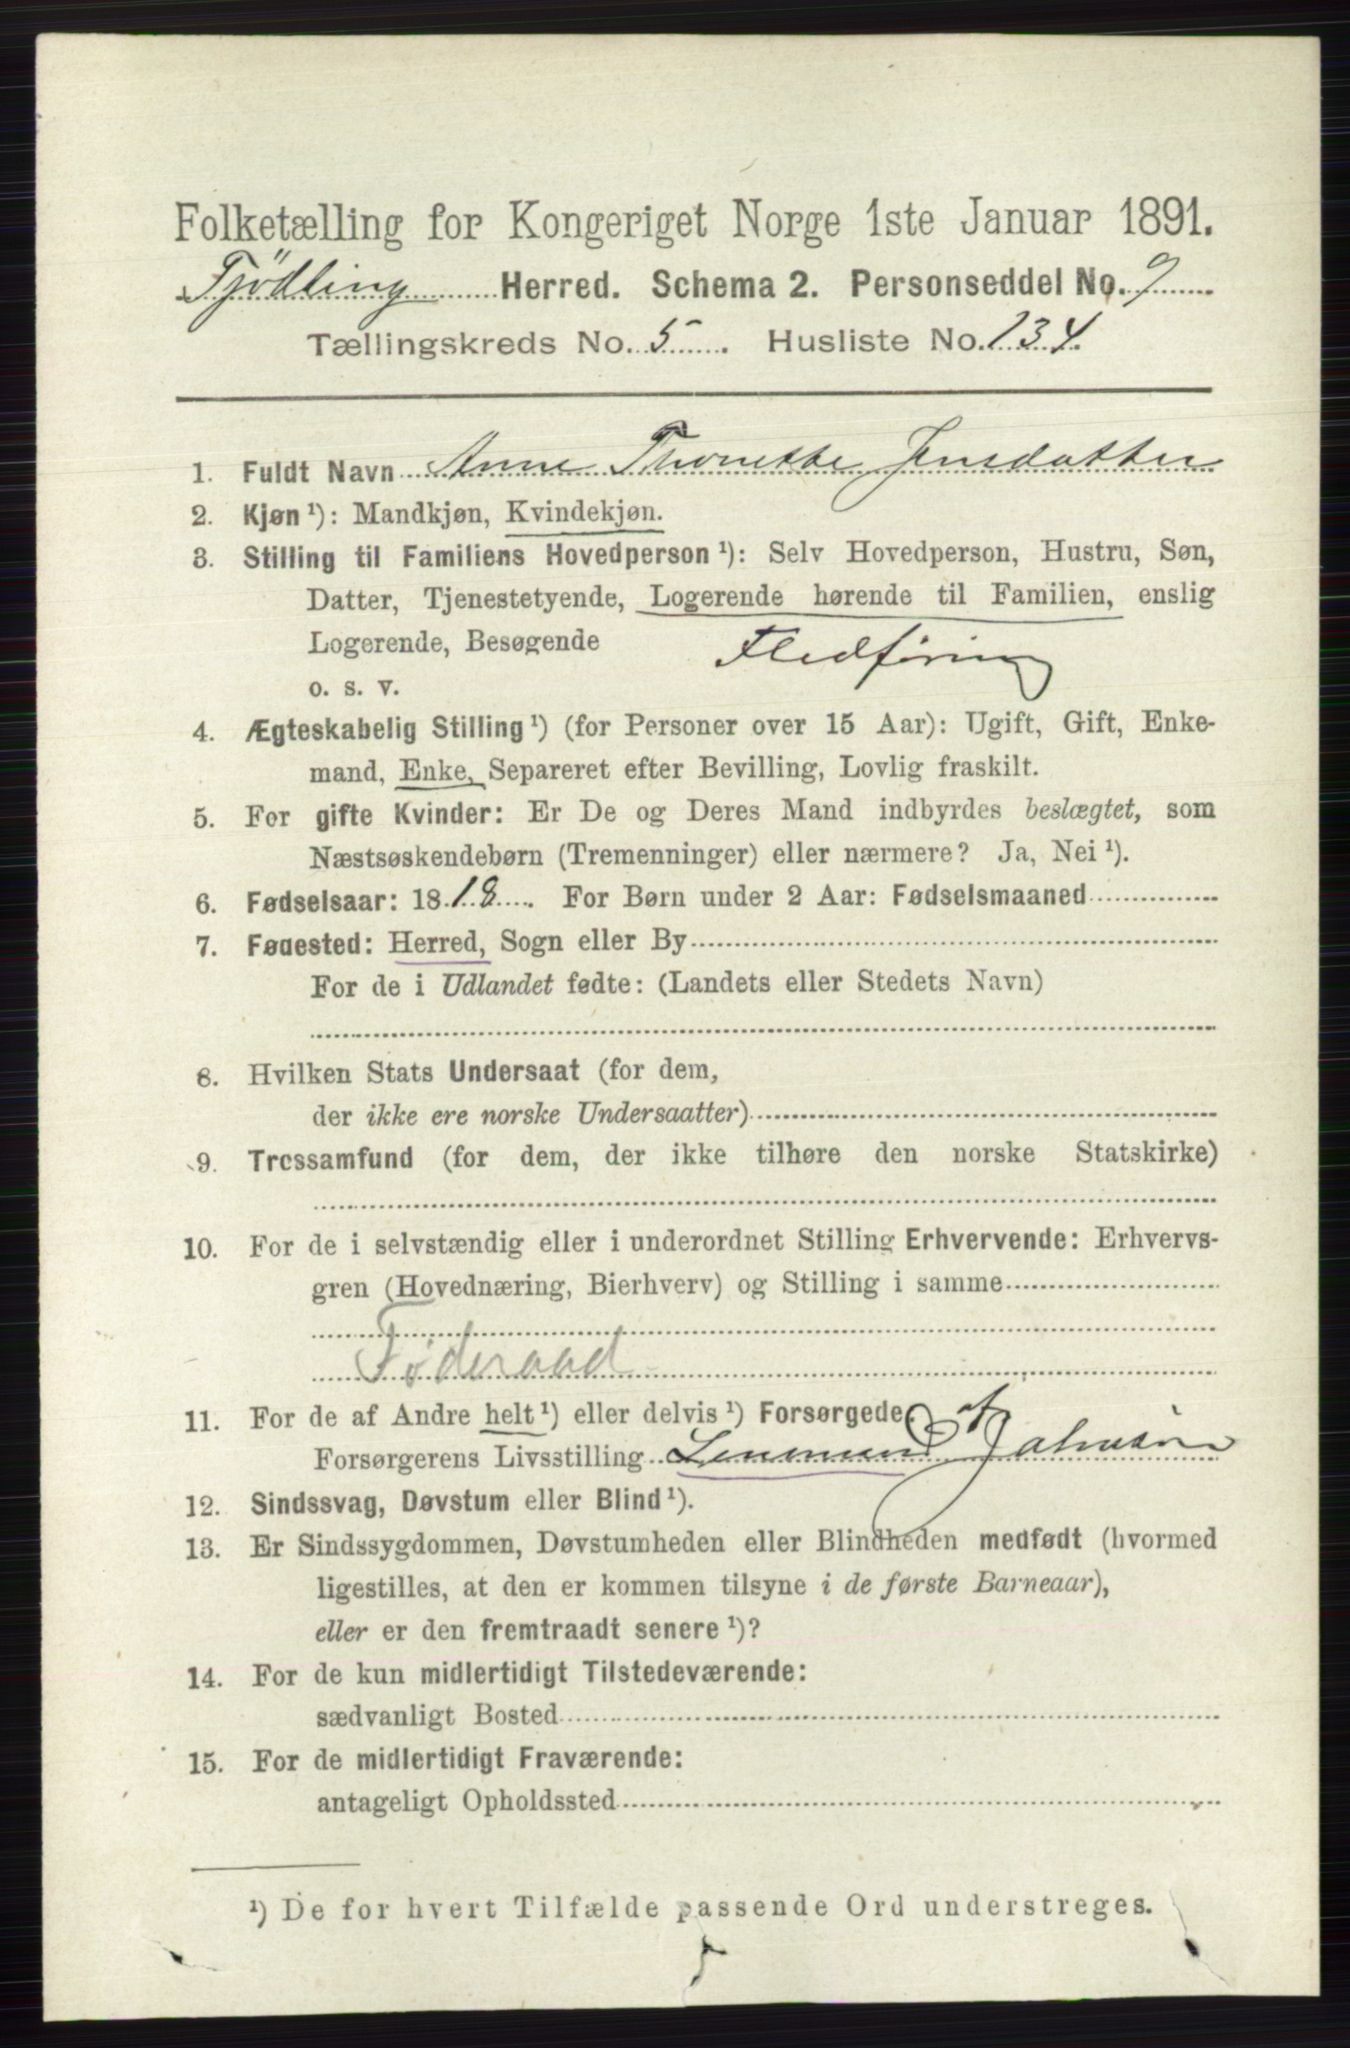 Folketælling for Kongeriget Norge 1ste Januar 1891.
Tjødling Herred. Schema 2. Personseddel No. 9
Tællingskreds No. 5. Husliste No. 134
1. Fuldt Navn Anne Thonette Jensdatter
2. Kjøn ¹): Mandkjøn, Kvindekjøn.
3. Stilling til Familiens Hovedperson ¹): Selv Hovedperson, Hustru, Søn,
Datter, Tjenestetyende, Logerende hørende til Familien, enslig
Logerende, Besøgende Fledføring
o. s. v.
4. Ægteskabelig Stilling ¹) (for Personer over 15 Aar): Ugift, Gift, Enke-
mand, Enke, Separeret efter Bevilling, Lovlig fraskilt.
5. For gifte Kvinder: Er De og Deres Mand indbyrdes beslægtet, som
Næstsøskendebørn (Tremenninger) eller nærmere? Ja, Nei ¹).
6. Fødselsaar: 1818. For Børn under 2 Aar: Fødselsmaaned
7. Fødested: Herred, Sogn eller By
For de i Udlandet fødte: (Landets eller Stedets Navn)
8. Hvilken Stats Undersaat (for dem,
der ikke ere norske Undersaatter)
9. Trossamfund (for dem, der ikke tilhøre den norske Statskirke)
10. For de i selvstændig eller i underordnet Stilling Erhvervende: Erhvervs-
gren (Hovednæring, Bierhverv) og Stilling i samme
Føderaad
11. For de af Andre helt ¹) eller delvis ¹) Forsørgede.
Forsørgerens Livsstilling
12. Sindssvag, Døvstum eller Blind ¹).
13. Er Sindssygdommen, Døvstumheden eller Blindheden medfødt (hvormed
ligestilles, at den er kommen tilsyne i de første Barneaar),
eller er den fremtraadt senere ¹)?
14. For de kun midlertidigt Tilstedeværende:
sædvanligt Bosted
15. For de midlertidigt Fraværende:
antageligt Opholdssted
¹) De for hvert Tilfælde passende Ord understreges.